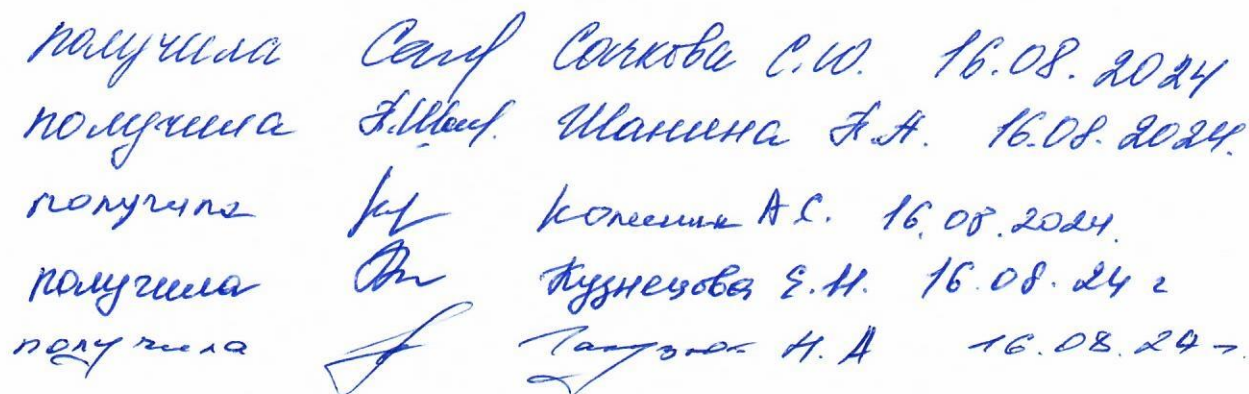 получила Сачкова С.Ю. 16.08.2024
получила Шанина Н.А. 16.08.2024.
получила А.С. 16.08.2024.
получила Кузнецова Е.Н. 16.08.24 г
получила Н.А 16.08.24 г.